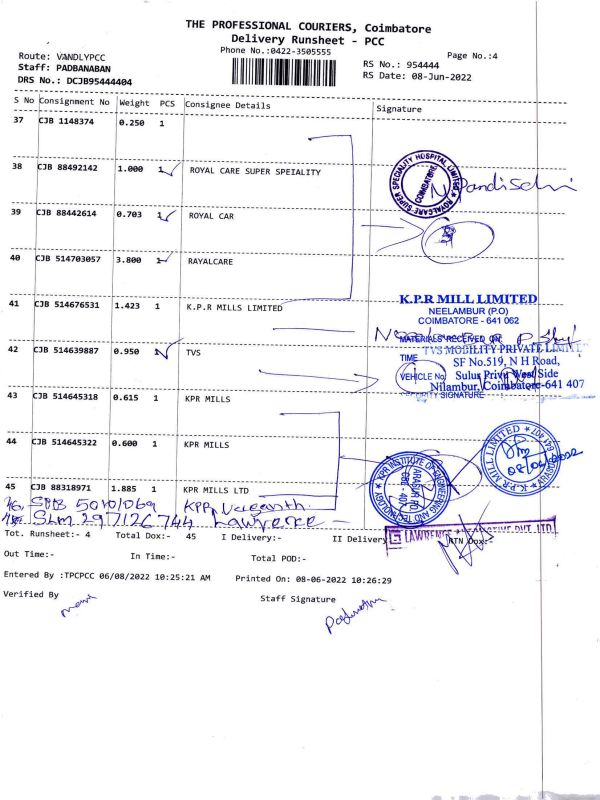 THE PROFESSIONAL COURIERS, Coimbatore
Delivery Runsheet - PCC
Phone No.:0422-3505555
Page No.:4
Route: VANDLYPCC
Staff: PADBANABAN
DRS No.: DCJB95444404
RS No.: 954444
RS Date: 08-Jun-2022
S No Consignment No Weight PCS Consignee Details Signature
37 CJB 1148374 0.250 1
38 CJB 88492142 1.000 1 ROYAL CARE SUPER SPEIALITY
ROYALCARE SUPER SPECIALITY HOSPITAL LIMITED
COIMBATORE
39 CJB 88442614 0.703 1 ROYAL CAR
40 CJB 514703057 3.800 1 RAYALCARE
41 CJB 514676531 1.423 1 K.P.R MILLS LIMITED
K.P.R MILL LIMITED
NEELAMBUR (P.O)
COIMBATORE - 641 062
MATERIALS RECEIVED ON
TIME
VEHICLE No
SECURITY SIGNATURE
42 CJB 514639887 0.950 1 TVS
TVS MOBILITY PRIVATE LIMITED
SF No.519, N H Road,
Sulur Privu West Side
Nilambur, Coimbatore-641 407
43 CJB 514645318 0.615 1 KPR MILLS
44 CJB 514645322 0.600 1 KPR MILLS
K.P.R MILL LIMITED
641 407
08/06/2022
KPR INSTITUTE OF ENGINEERING AND TECHNOLOGY
ARASUR PO
45 CJB 88318971 1.885 1 KPR MILLS LTD
SLM 297126744 Lawrence
Tot. Runsheet:- 4 Total Dox:- 45 I Delivery:- II Delivery:- RTN Dox:-
Out Time:- In Time:- Total POD:-
Entered By :TPCPCC 06/08/2022 10:25:21 AM Printed On: 08-06-2022 10:26:29
Verified By Staff Signature